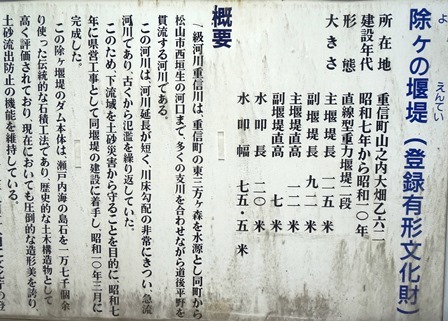 よ えんてい
除ヶの堰堤（登録有形文化財）
所在地 重信町山之内大畑乙六二
建設年代 昭和七年から昭和一〇年
形態 直線型重力堰堤二段
大きさ 主堰堤長 一二五米
副堰堤長 九二米
主堰堤直高 一二米
副堰堤直高 七米
水叩長 二〇米
水叩幅 七五・五米
概要
一級河川重信川は、重信町の東三方ヶ森を水源とし同町から
松山市西垣生の河口まで、多くの支川を合わせながら道後平野を
貫流する河川である。
この河川は、河川延長が短く、川床勾配の非常にきつい、急流
河川であり、古くから氾濫を繰り返していた。
このため、下流域を土砂災害から守ることを目的に、昭和七
年に県営工事として同堰堤の建設に着手し、昭和一〇年三月に
完成した。
この除ヶ堰堤のダム本体は、瀬戸内海の島石を一万七千個余
り使った伝統的な石積工法であり、歴史的な土木構造物として
高く評価されており、現在においても圧倒的な造形美を誇り、
土砂流出防止の機能を維持している。